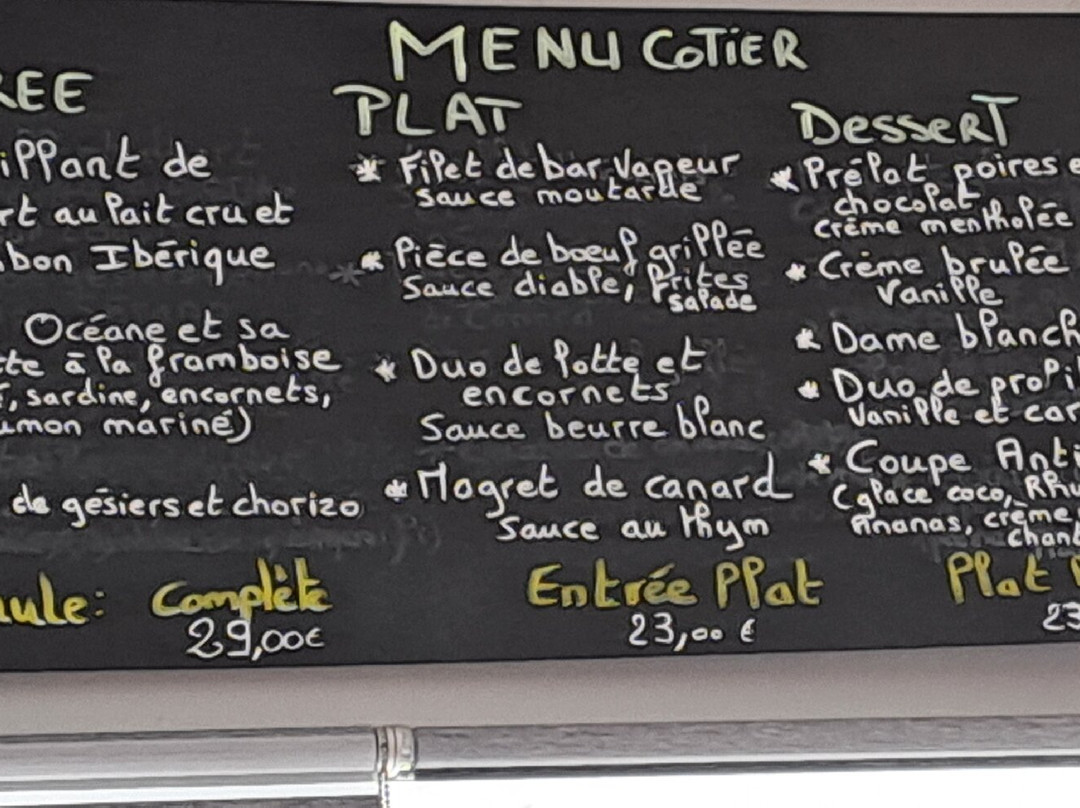 MENU COTIER
REE
ippant de
rt au lait cru et
bon Ibérique
Océane et sa
te à la framboise
, sardine, encornets,
umon mariné)
de gésiers et chorizo
PLAT
* Filet de bar vapeur
sauce moutarde
* Pièce de boeuf grillée
Sauce diable, frites
salade
* Duo de lotte et
encornets
Sauce beurre blanc
* Magret de canard
Sauce au thym
DesserT
* Prélat poires e
chocolat
crème mentholée
* Crème brulée
Vanille
* Dame blanch
* Duo de profi
Vanille et car
* Coupe Anti
(glace coco, Rhu
Ananas, crème
chant
ule: Complète
29,00€
Entrée Plat
23,00 €
Plat
23